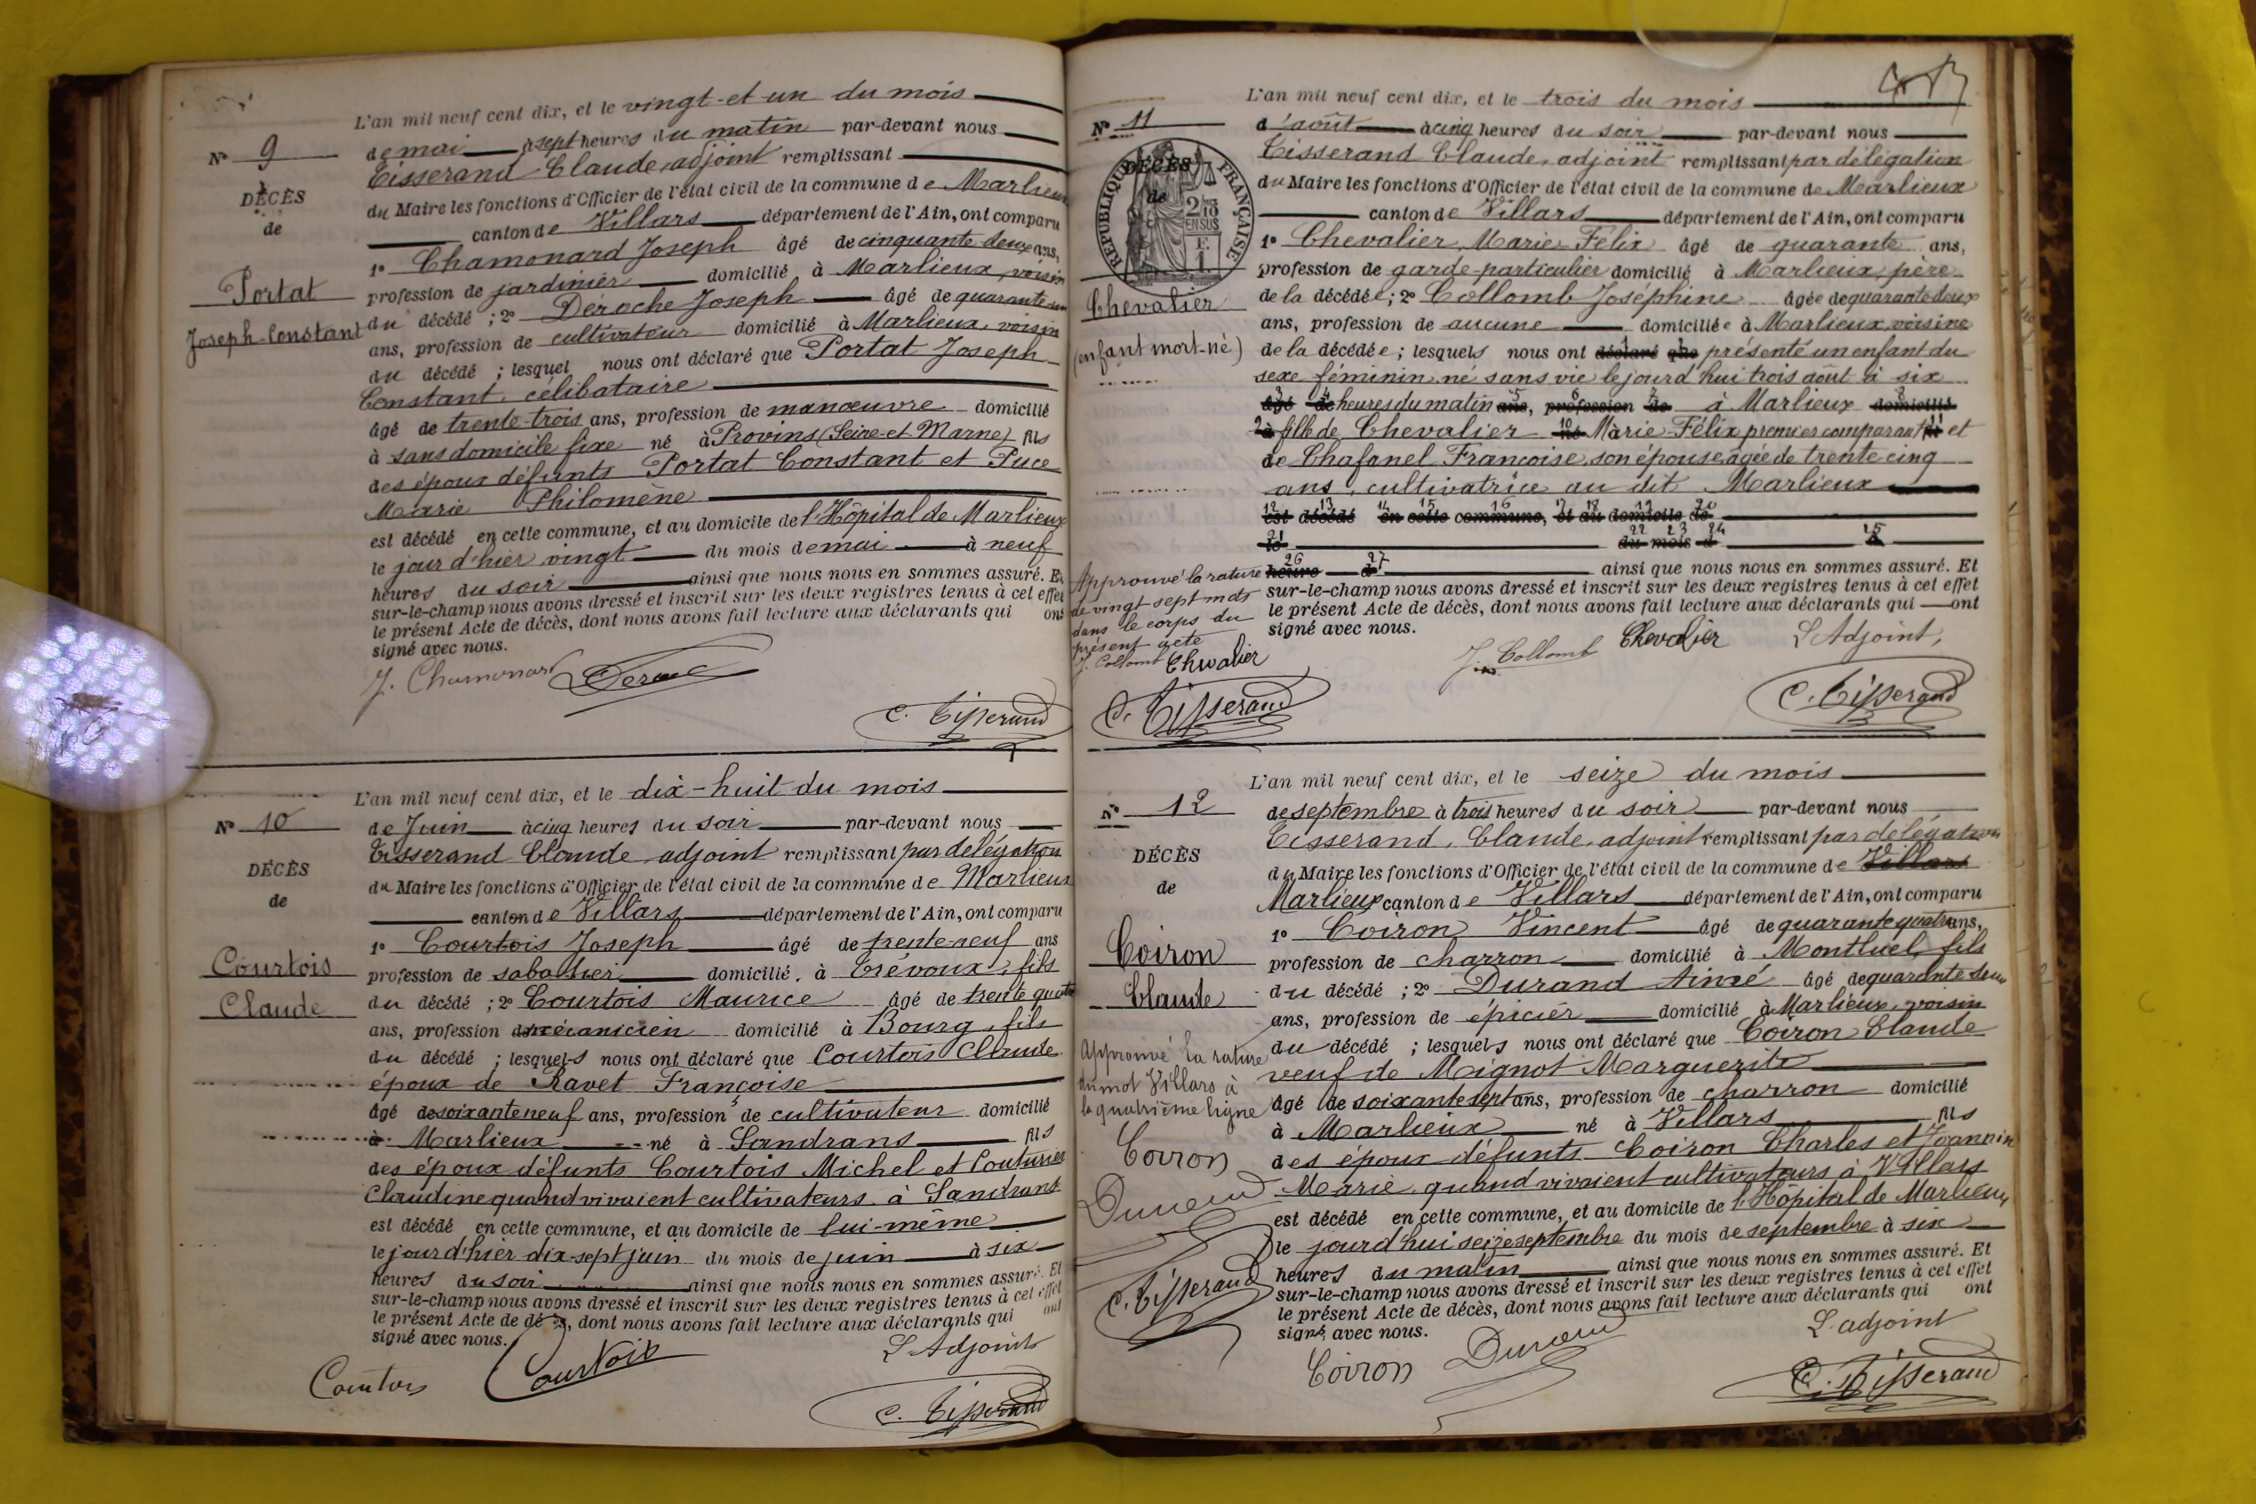 L'an mil neuf cent dix, et le vingt-et un du mois
N° 9
de mai à sept heures du matin par-devant nous
Tisserand Claude, adjoint remplissant
DÉCÈS
du Maire les fonctions d'Officier de l'état civil de la commune de Marlieux
de
canton de Villars département de l'Ain, ont comparu
1° Chamonard Joseph âgé de cinquante deux ans,
Portat
profession de jardinier domicilié à Marlieux, voisin
Joseph-Constant
du décédé ; 2° Déroche Joseph âgé de quarante
ans, profession de cultivateur domicilié à Marlieux, voisin
du décédé ; lesquel nous ont déclaré que Portat Joseph
Constant, célibataire
âgé de trente-trois ans, profession de manœuvre domicilié
à sans domicile fixe né à Provins (Seine-et Marne) fils
des époux défunts Portat Constant et Puce
Marie Philomène
est décédé en cette commune, et au domicile de l'Hôpital de Marlieux
le jour d'hier vingt du mois de mai à neuf
heures du soir ainsi que nous nous en sommes assuré. Et
sur-le-champ nous avons dressé et inscrit sur les deux registres tenus à cet effet
le présent Acte de décès, dont nous avons fait lecture aux déclarants qui ont
signé avec nous.
J. Chamonard
C. Tisserand
L'an mil neuf cent dix, et le dix-huit du mois
N° 10
de Juin à cinq heures du soir par-devant nous
Tisserand Claude, adjoint remplissant par délégation
DÉCÈS
du Maire les fonctions d'Officier de l'état civil de la commune de Marlieux
de
canton de Villars département de l'Ain, ont comparu
1° Courtois Joseph âgé de trente-neuf ans
Courtois
profession de sabotier domicilié à Trévoux, fils
Claude
du décédé ; 2° Courtois Maurice âgé de trente quatre
ans, profession de mécanicien domicilié à Bourg, fils
du décédé ; lesquels nous ont déclaré que Courtois Claude
époux de Ravet Françoise
âgé de soixante neuf ans, profession de cultivateur domicilié
à Marlieux né à Sandrans fils
des époux défunts Courtois Michel et Couturier
Claudine quand vivaient cultivateurs à Sandrans
est décédé en cette commune, et au domicile de lui-même
le jour d'hier dix-sept juin du mois de juin à six
heures du soir ainsi que nous nous en sommes assuré. Et
sur-le-champ nous avons dressé et inscrit sur les deux registres tenus à cet effet
le présent Acte de décès, dont nous avons fait lecture aux déclarants qui ont
signé avec nous.
L'Adjoint
Courtois Courtois
C. Tisserand
L'an mil neuf cent dix, et le trois du mois
N° 11
d'août à cinq heures du soir par-devant nous
Tisserand Claude, adjoint remplissant par délégation
DÉCÈS
RÉPUBLIQUE FRANÇAISE
du Maire les fonctions d'Officier de l'état civil de la commune de Marlieux
de
2/10 EN SUS
canton de Villars département de l'Ain, ont comparu
1° Chevalier Marie Félix âgé de quarante ans,
profession de garde-particulier domicilié à Marlieux, père
Chevalier
de la décédée ; 2° Collomb Joséphine âgée de quarante deux
ans, profession de aucune domiciliée à Marlieux, voisine
(enfant mort-né)
de la décédée ; lesquels nous ont déclaré que présenté un enfant du
sexe féminin né sans vie le jourd'hui trois août à six
âgé de heures du matin ans, profession de à Marlieux domicilié
à fille de Chevalier né Marie-Félix premier comparant et
de Chafanel Françoise, son épouse, âgée de trente cinq
ans, cultivatrice au dit Marlieux
est décédé en cette commune, et au domicile de
le du mois d à
heure d ainsi que nous nous en sommes assuré. Et
sur-le-champ nous avons dressé et inscrit sur les deux registres tenus à cet effet
le présent Acte de décès, dont nous avons fait lecture aux déclarants qui ont
signé avec nous.
Approuvé la rature
de vingt sept mots
dans le corps du
présent acte
J. Collomb Chevalier
C. Tisserand
J. Collomb Chevalier L'Adjoint,
C. Tisserand
L'an mil neuf cent dix, et le seize du mois
N° 12
de septembre à trois heures du soir par-devant nous
Tisserand, Claude, adjoint remplissant par délégation
DÉCÈS
du Maire les fonctions d'Officier de l'état civil de la commune de Villars
de
Marlieux canton de Villars département de l'Ain, ont comparu
1° Coiron Vincent âgé de quarante quatre ans,
Coiron
profession de charron domicilié à Montluel, fils
Claude
du décédé ; 2° Durand Aimé âgé de quarante deux
ans, profession de épicier domicilié à Marlieux, voisin
du décédé ; lesquels nous ont déclaré que Coiron Claude
veuf de Mignot Marguerite
âgé de soixante sept ans, profession de charron domicilié
à Marlieux né à Villars fils
des époux défunts Coiron Charles et Joannin
Marie, quand vivaient cultivateurs à Villars
est décédé en cette commune, et au domicile de l'Hôpital de Marlieux
le jourd'hui seize septembre du mois de septembre à six
heures du matin ainsi que nous nous en sommes assuré. Et
sur-le-champ nous avons dressé et inscrit sur les deux registres tenus à cet effet
le présent Acte de décès, dont nous avons fait lecture aux déclarants qui ont
signé avec nous.
Approuvé la rature
du mot Villars à
la quatrième ligne
Coiron
Durand
C. Tisserand
L'adjoint
Coiron Durand
C. Tisserand